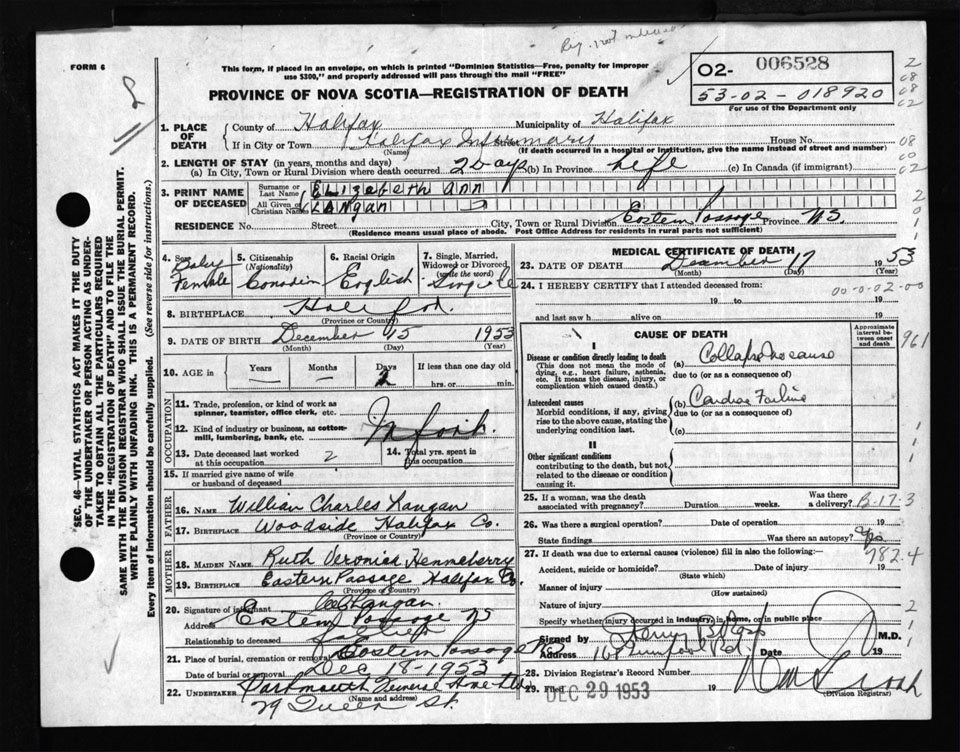 FORM 6
This form, if placed in an envelope, on which is printed "Dominion Statistics—Free, penalty for improper
use $300," and properly addressed will pass through the mail "FREE"
PROVINCE OF NOVA SCOTIA—REGISTRATION OF DEATH
02- 006528
53-02-018920
For use of the Department only
1. PLACE OF DEATH
County of Halifax Municipality of Halifax
If in City or Town Halifax Infirmary Street House No.
(Name) (If death occurred in a hospital or institution, give the name instead of street and number)
2. LENGTH OF STAY (in years, months and days)
(a) In City, Town or Rural Division where death occurred 2 Days (b) In Province life (c) In Canada (if immigrant)
3. PRINT NAME OF DECEASED
Surname or Last Name ELIZABETH ANN
All Given or Christian Names LANGAN
RESIDENCE No. Street City, Town or Rural Division Eastern Passage Province NS.
(Residence means usual place of abode. Post Office Address for residents in rural parts not sufficient)
4. Sex Baby Female
5. Citizenship (Nationality) Canadian
6. Racial Origin English
7. Single, Married, Widowed or Divorced (write the word) Single
8. BIRTHPLACE Halifax
(Province or Country)
9. DATE OF BIRTH December 15 1953
(Month) (Day) (Year)
10. AGE in Years Months Days If less than one day old
— — 2 hrs. or min.
OCCUPATION
11. Trade, profession, or kind of work as spinner, teamster, office clerk, etc.
12. Kind of industry or business, as cotton-mill, lumbering, bank, etc.
13. Date deceased last worked at this occupation
14. Total yrs. spent in this occupation
15. If married give name of wife or husband of deceased
FATHER
16. Name William Charles Langan
17. Birthplace Woodside Halifax Co.
(Province or Country)
MOTHER
18. MAIDEN NAME Ruth Veronica Henneberry
19. BIRTHPLACE Eastern Passage Halifax Co.
(Province or Country)
20. Signature of informant Langan.
Address Eastern Passage NS
Relationship to deceased father
21. Place of burial, cremation or removal Eastern Passage
Date of burial or removal Dec 18-1953
22. UNDERTAKER Dartmouth Funeral Home
(Name and address)
79 Queen St.
MEDICAL CERTIFICATE OF DEATH
23. DATE OF DEATH December 17 1953
(Month) (Day) (Year)
24. I HEREBY CERTIFY that I attended deceased from:
19 to 19
and last saw h alive on 19
CAUSE OF DEATH
Approximate interval between onset and death
961
I
Disease or condition directly leading to death (a) Collapse no cause
(This does not mean the mode of dying, e.g., heart failure, asthenia, etc. It means the disease, injury, or complication which caused death.)
due to (or as a consequence of)
Antecedent causes (b) Cardiac Failure
Morbid conditions, if any, giving rise to the above cause, stating the underlying condition last.
due to (or as a consequence of)
(c)
II
Other significant conditions
contributing to the death, but not related to the disease or condition causing it.
25. If a woman, was the death associated with pregnancy? Duration weeks. Was there a delivery? B-17-3
26. Was there a surgical operation? Date of operation 19
State findings Was there an autopsy? Yes
782-4
27. If death was due to external causes (violence) fill in also the following:—
Accident, suicide or homicide? Date of injury 19
(State which)
Manner of injury
(How sustained)
Nature of injury
Specify whether injury occurred in industry, in home, or in public place
Signed by M.D.
Address Date 19
28. Division Registrar's Record Number
29. Filed DEC 29 1953 19
(Division Registrar)
SEC. 46—VITAL STATISTICS ACT MAKES IT THE DUTY
OF THE UNDERTAKER OR PERSON ACTING AS UNDER-
TAKER TO OBTAIN ALL THE PARTICULARS REQUIRED
IN THE "REGISTRATION OF DEATH" AND TO FILE THE
SAME WITH THE DIVISION REGISTRAR WHO SHALL ISSUE THE BURIAL PERMIT.
WRITE PLAINLY WITH UNFADING INK. THIS IS A PERMANENT RECORD.
Every item of information should be carefully supplied. (See reverse side for instructions.)